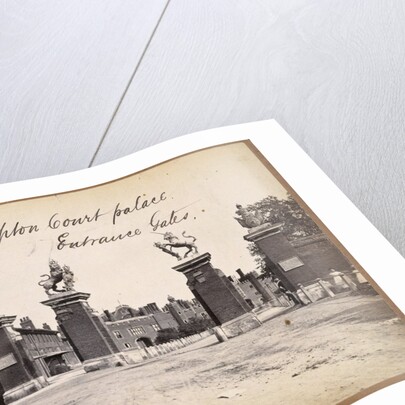 pton Court palace.
Entrance Gates..